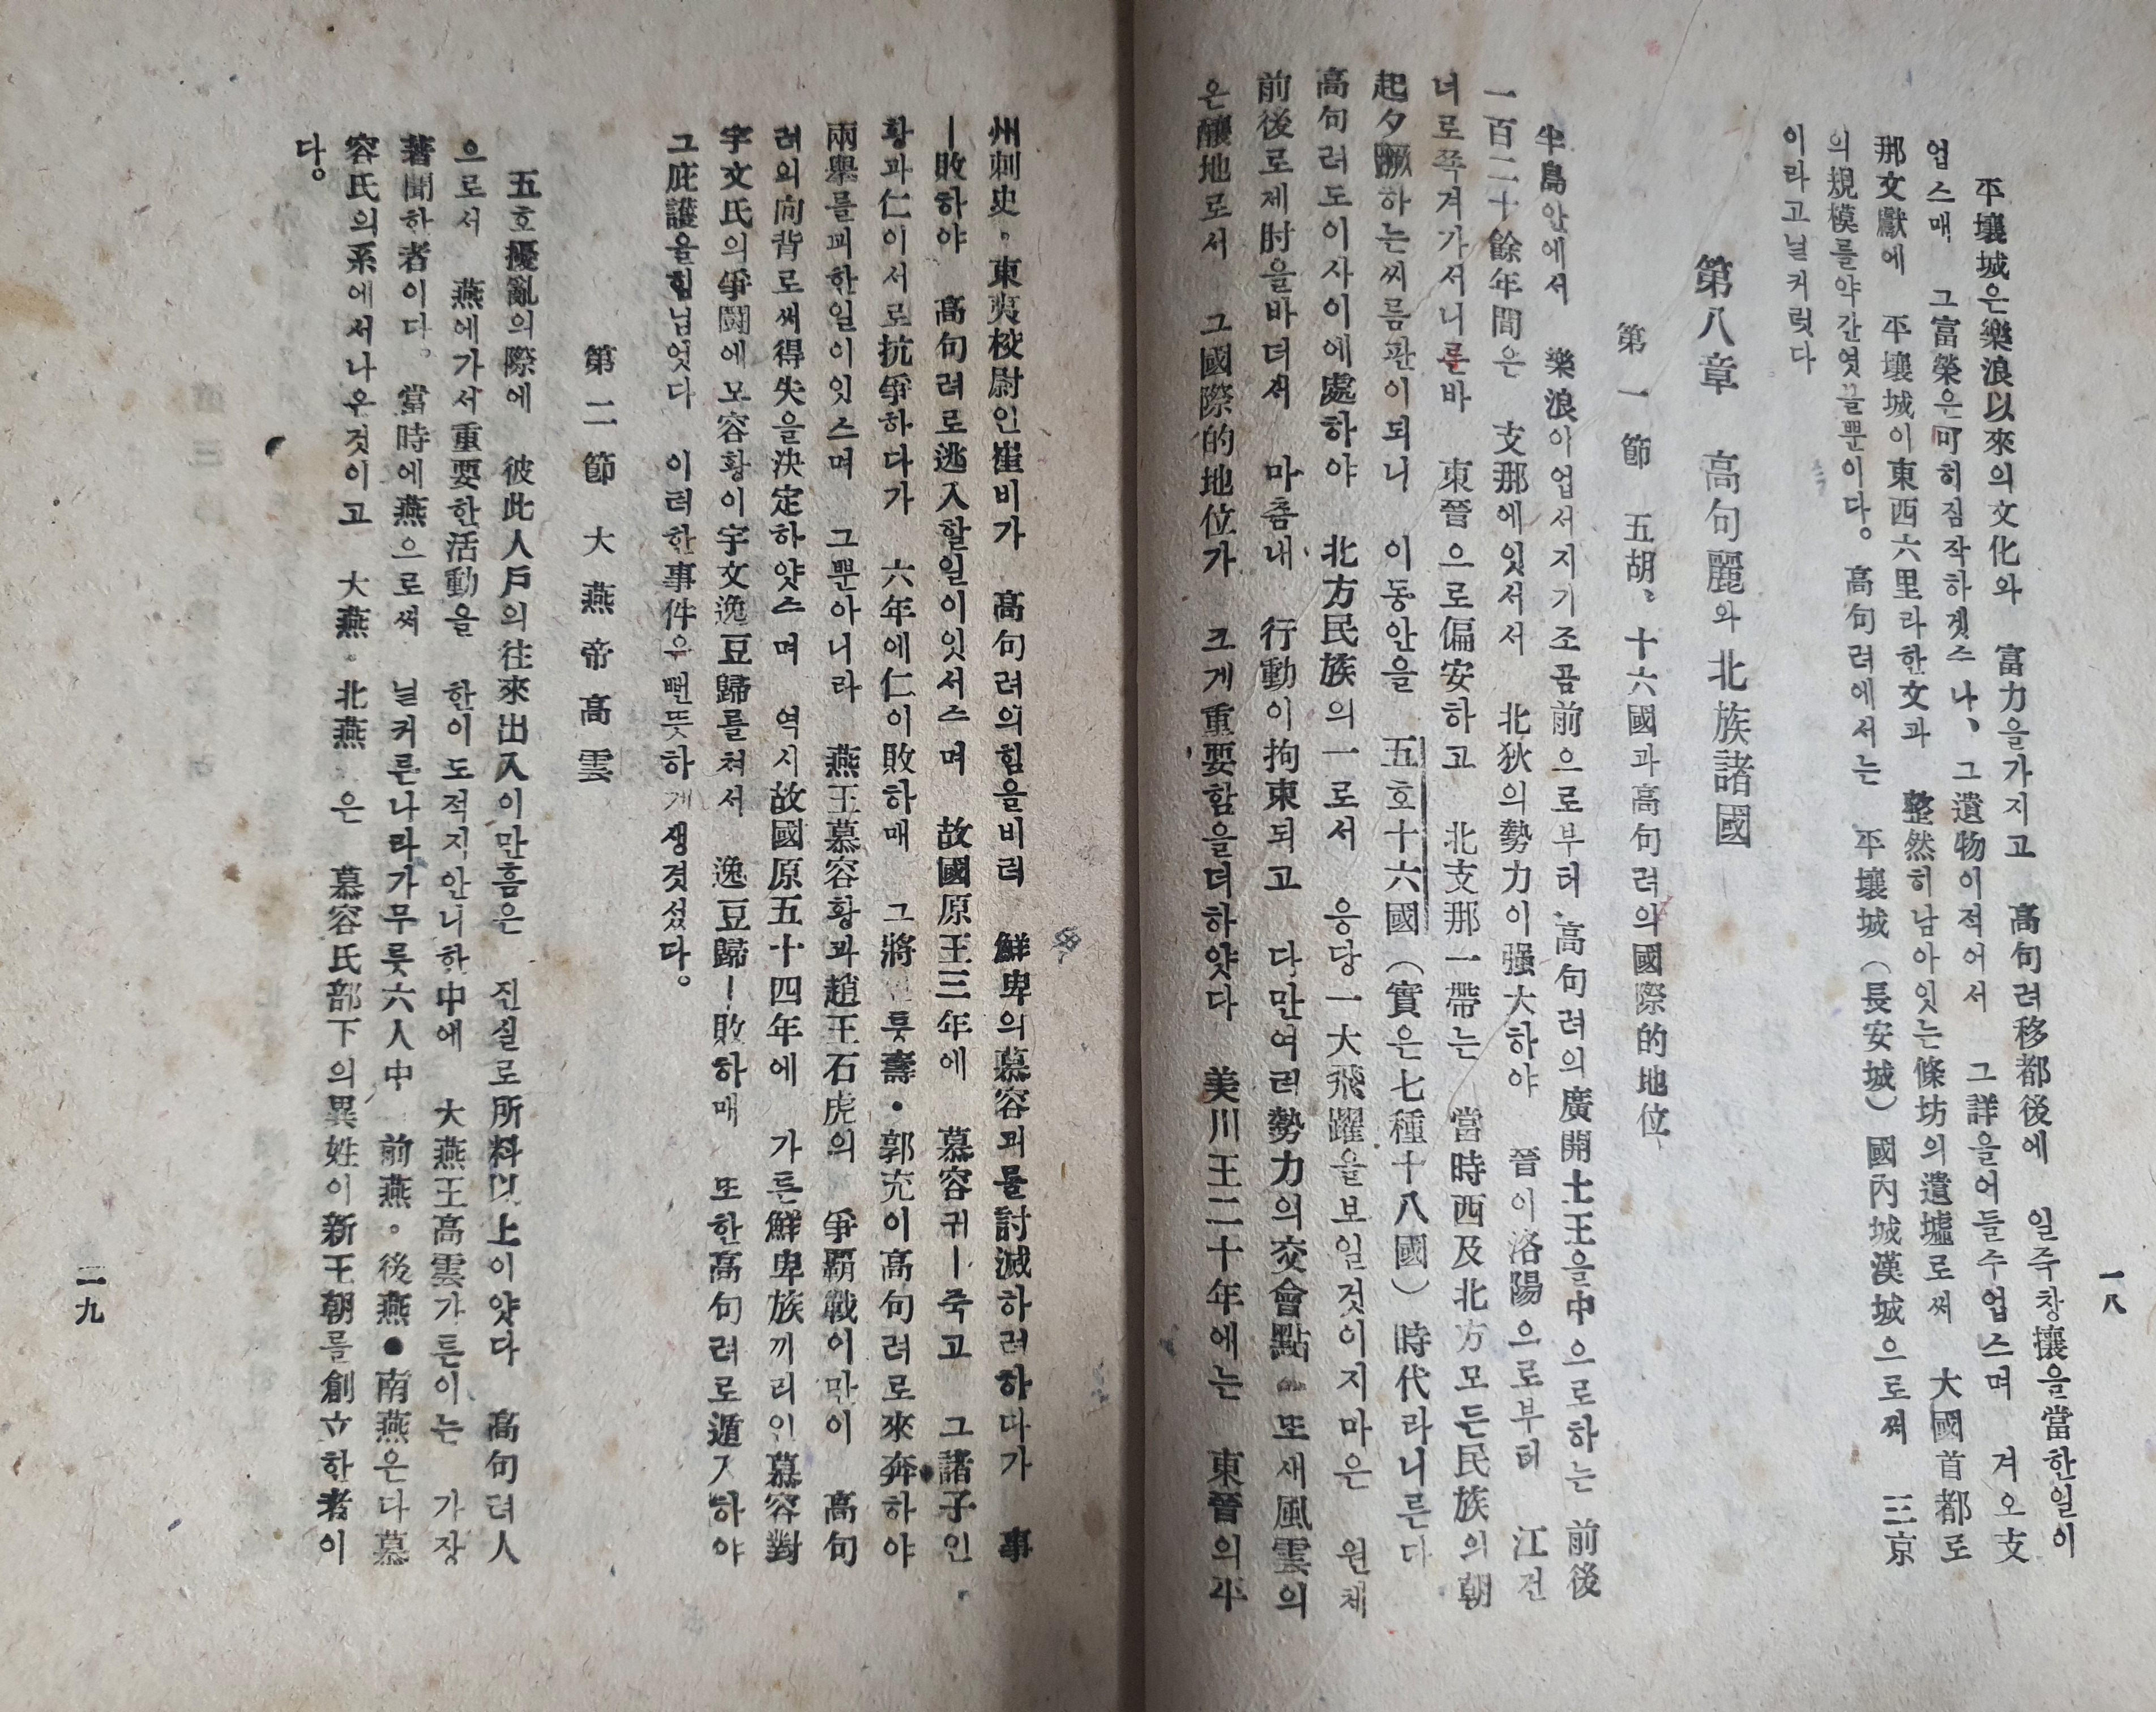 平壤城은樂浪以來의文化와 富力을가지고 高句려移都後에 일즉창攘을當한일이
업스매 그富榮은可히짐작하겟스나、그遺物이적어서 그詳을어들수업스며 겨오支
那文獻에 平壤城이東西六里라한文과 整然히남아잇는條坊의遺墟로써 大國首都로
의規模를약간엿볼뿐이다。高句려에서는 平壤城(長安城)國內城漢城으로써 三京
이라고닐커럿다
第八章 高句麗와北族諸國
第一節 五胡、十六國과高句려의國際的地位
半島안에서 樂浪이업서지기조곰前으로부터 高句려의廣開土王을中으로하는 前後
一百二十餘年間은 支那에잇서서 北狄의勢力이强大하야 晉이洛陽으로부터 江건
너로쪽겨가서니른바 東晉으로偏安하고 北支那一帶는 當時西及北方모든民族의朝
起夕蹶하는씨름판이되니 이동안을 五호十六國(實은七種十八國)時代라니른다
高句려도이사이에處하야 北方民族의一로서 응당一大飛躍을보일것이지마은 원체
前後로제肘을바더서 마츰내 行動이拘束되고 다만여러勢力의交會點 또새風雲의
은釀地로서 그國際的地位가 크게重要함을더하얏다 美川王二十年에는 東晉의平
一八
州刺史。東夷校尉인崔비가 高句려의힘을비러 鮮卑의慕容외를討滅하려하다가 事
ㅣ敗하야 高句려로逃入할일이잇서스며 故國原王三年에 慕容귀ㅣ죽고 그諸子인
황과仁이서로抗爭하다가 六年에仁이敗하매 그將 壽•郭充이高句려로來奔하야
兩擧를꾀한일이잇스며 그뿐아니라 燕王慕容황과趙王石虎의 爭覇戰이만이 高句
려의向背로써得失을決定하얏스며 역시故國原五十四年에 가튼鮮卑族끼리인慕容對
宇文氏의爭鬪에모容황이宇文逸豆歸를쳐서 逸豆歸ㅣ敗하매 또한高句려로遁入하야
그庇護을힘닙엇다 이러한事件은뻔뜻하게생겻섰다。
第二節 大燕帝高雲
五호擾亂의際에 彼此人戶의往來出入이만흠은 진실로所料以上이얏다 高句려人
으로서 燕에가서重要한活動을 한이도적지안니하中에 大燕王高雲가튼이는 가장
著聞하者이다。當時에燕으로써 닐커른나라가무릇六人中 前燕。後燕●南燕은다慕
容氏의系에서나온것이고 大燕。北燕 은 慕容氏部下의異姓이新王朝를創立한者이
다。
二九